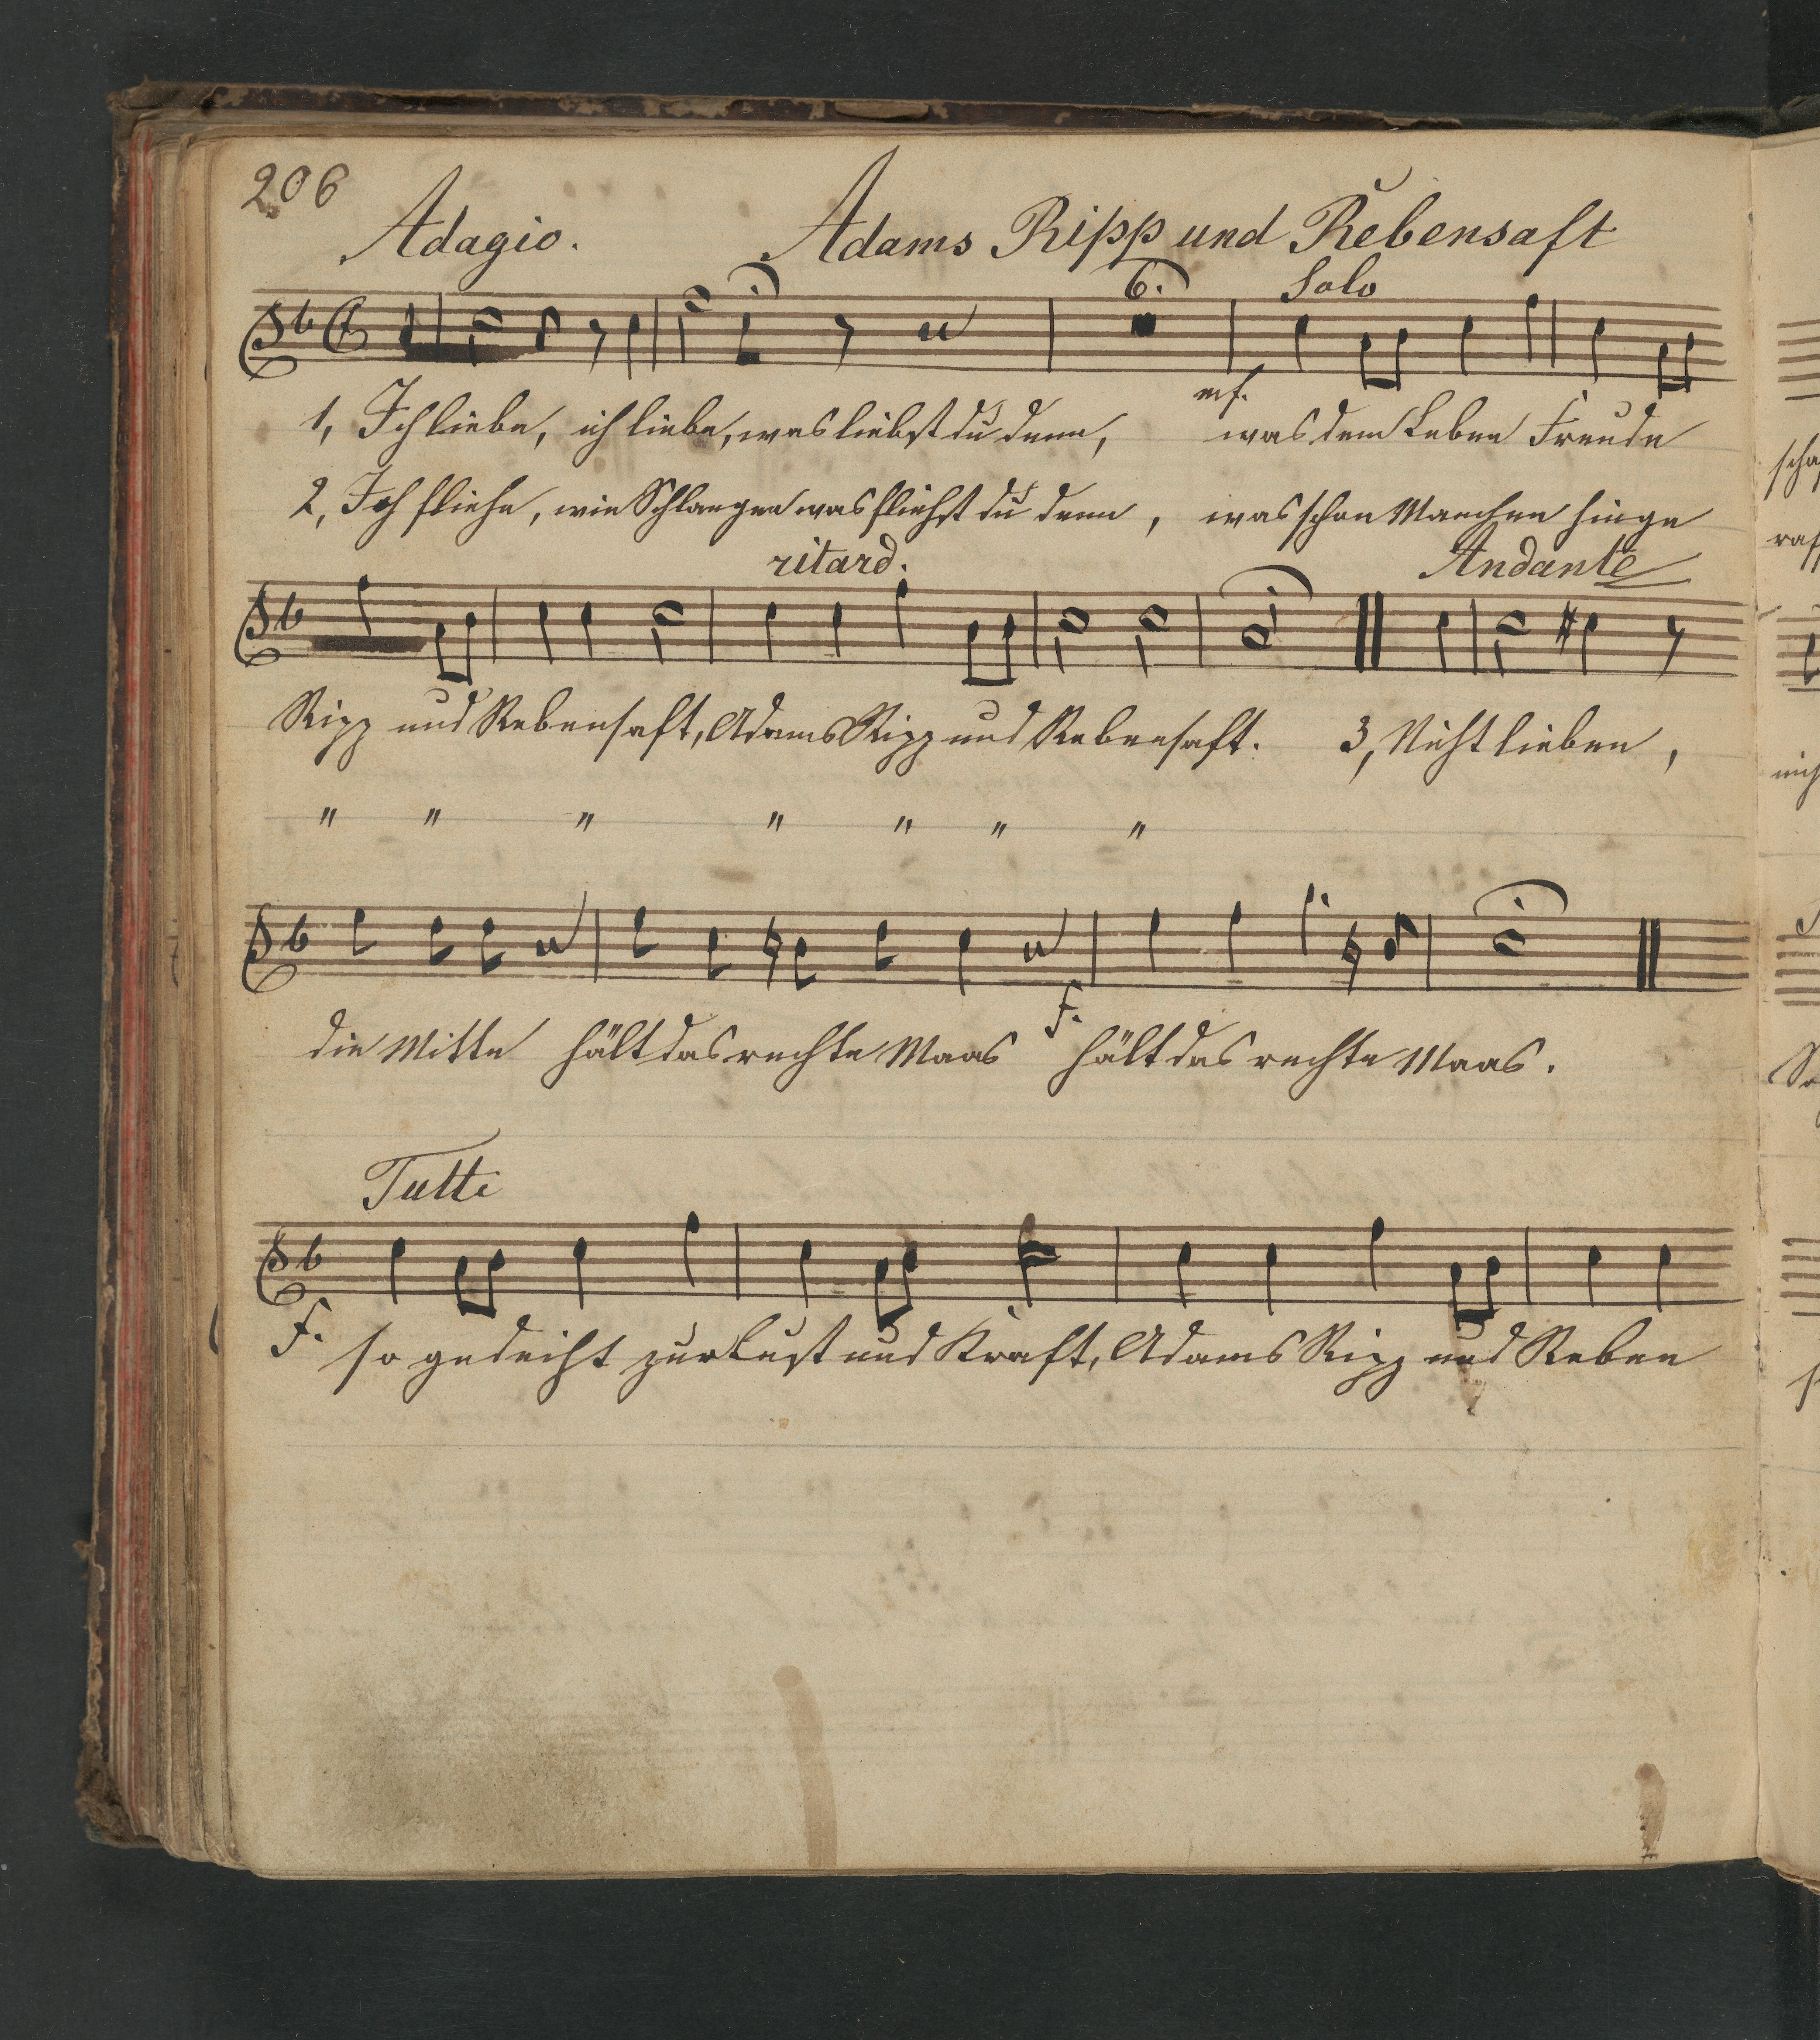 206
Adagio. Adams Ripp und Rebensaft
6. Solo
mf.
1, Ich liebe, ich liebe, was liebst du denn, was dem Leben Freude
2, Ich fliehe, wie Schlangen was fliehst du denn, was schon Manchen hinge
ritard. Andante
Ripp und Rebensaft, Adams Ripp und Rebensaft. 3, Nicht lieben,
" " " " " " "
f.
die Mitte hält das rechte Maas hält das rechte Maas.
Tutti
f. so gedeiht zur Lust und Kraft, Adams Ripp und Reben